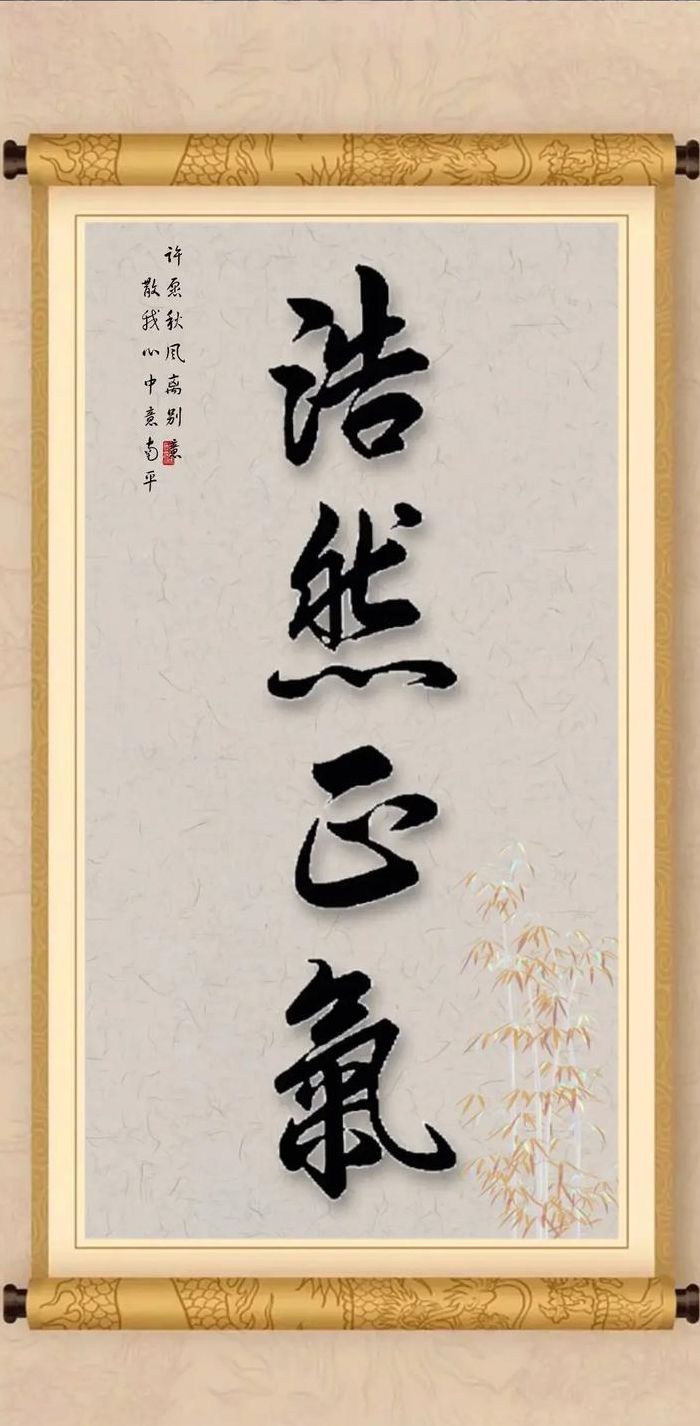 浩然正氣
许愿秋风离别意
散我心中意南平